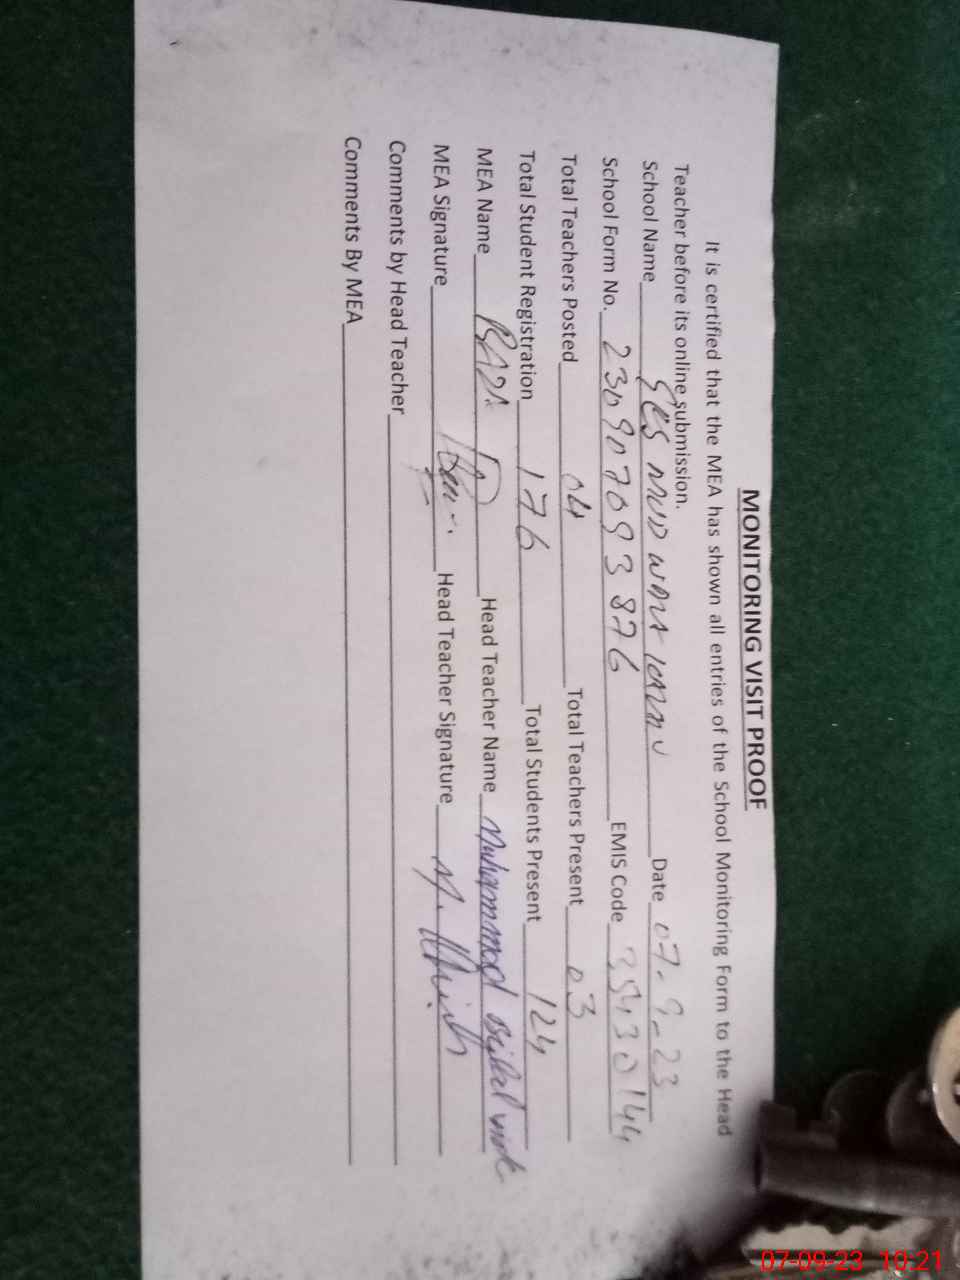 MONITORING VISIT PROOF
It is certified that the MEA has shown all entries of the School Monitoring Form to the Head
Teacher before its online submission.
School Name Date 07-9-23
School Form No. 230907093876 EMIS Code 35430144
Total Teachers Posted 04 Total Teachers Present 03
Total Student Registration 176 Total Students Present 124
MEA Name Head Teacher Name Muhammad
MEA Signature Head Teacher Signature
Comments by Head Teacher
Comments By MEA
07-09-23 10:21